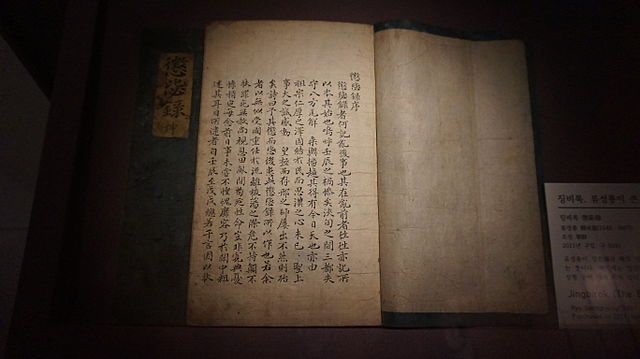 懲毖錄
坤
懲毖錄序
懲毖錄者何記亂後事也其在亂前者往往亦記所
以本其始也嗚呼壬辰之禍慘矣浹旬之間三都失
守八方瓦解 乘輿播越其得有今日天也亦由
祖宗仁厚之澤固結於民而思漢之心未已 聖上
事大之誠感動 皇極而存邢之師屢出不然則殆
矣詩曰予其懲而毖後患此懲毖錄所以作也若余
者以無似受國重任於流離板蕩之際危不持顚不
扶罪死無赦尙視息田畝間苟延性命豈非寬典憂
悸稍定每念前日事未嘗不惶愧靡容乃於閑中粗
述其耳目所逮者自壬辰至戊戌總若干言因以狀
징비록, 류성룡이 쓴
징비록 懲毖錄
조선
2011년 구입
Jingbirok (The